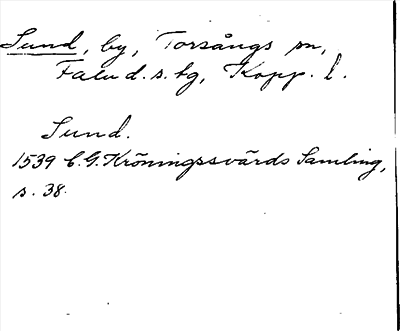 Sund, by, Torsångs sn,
Falu d. s. tg, Kopp. l.
Sund.
1539 C.G. Kröningssvärds Samling,
s. 38.